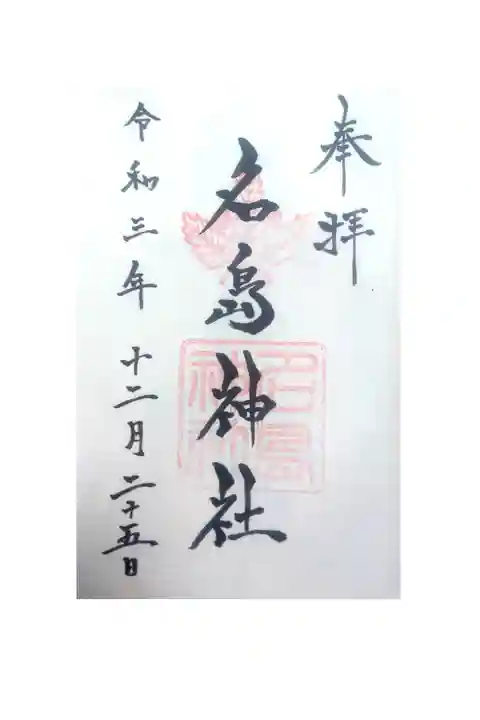 奉拝
名島神社
令和三年十二月二十五日
名島
神社